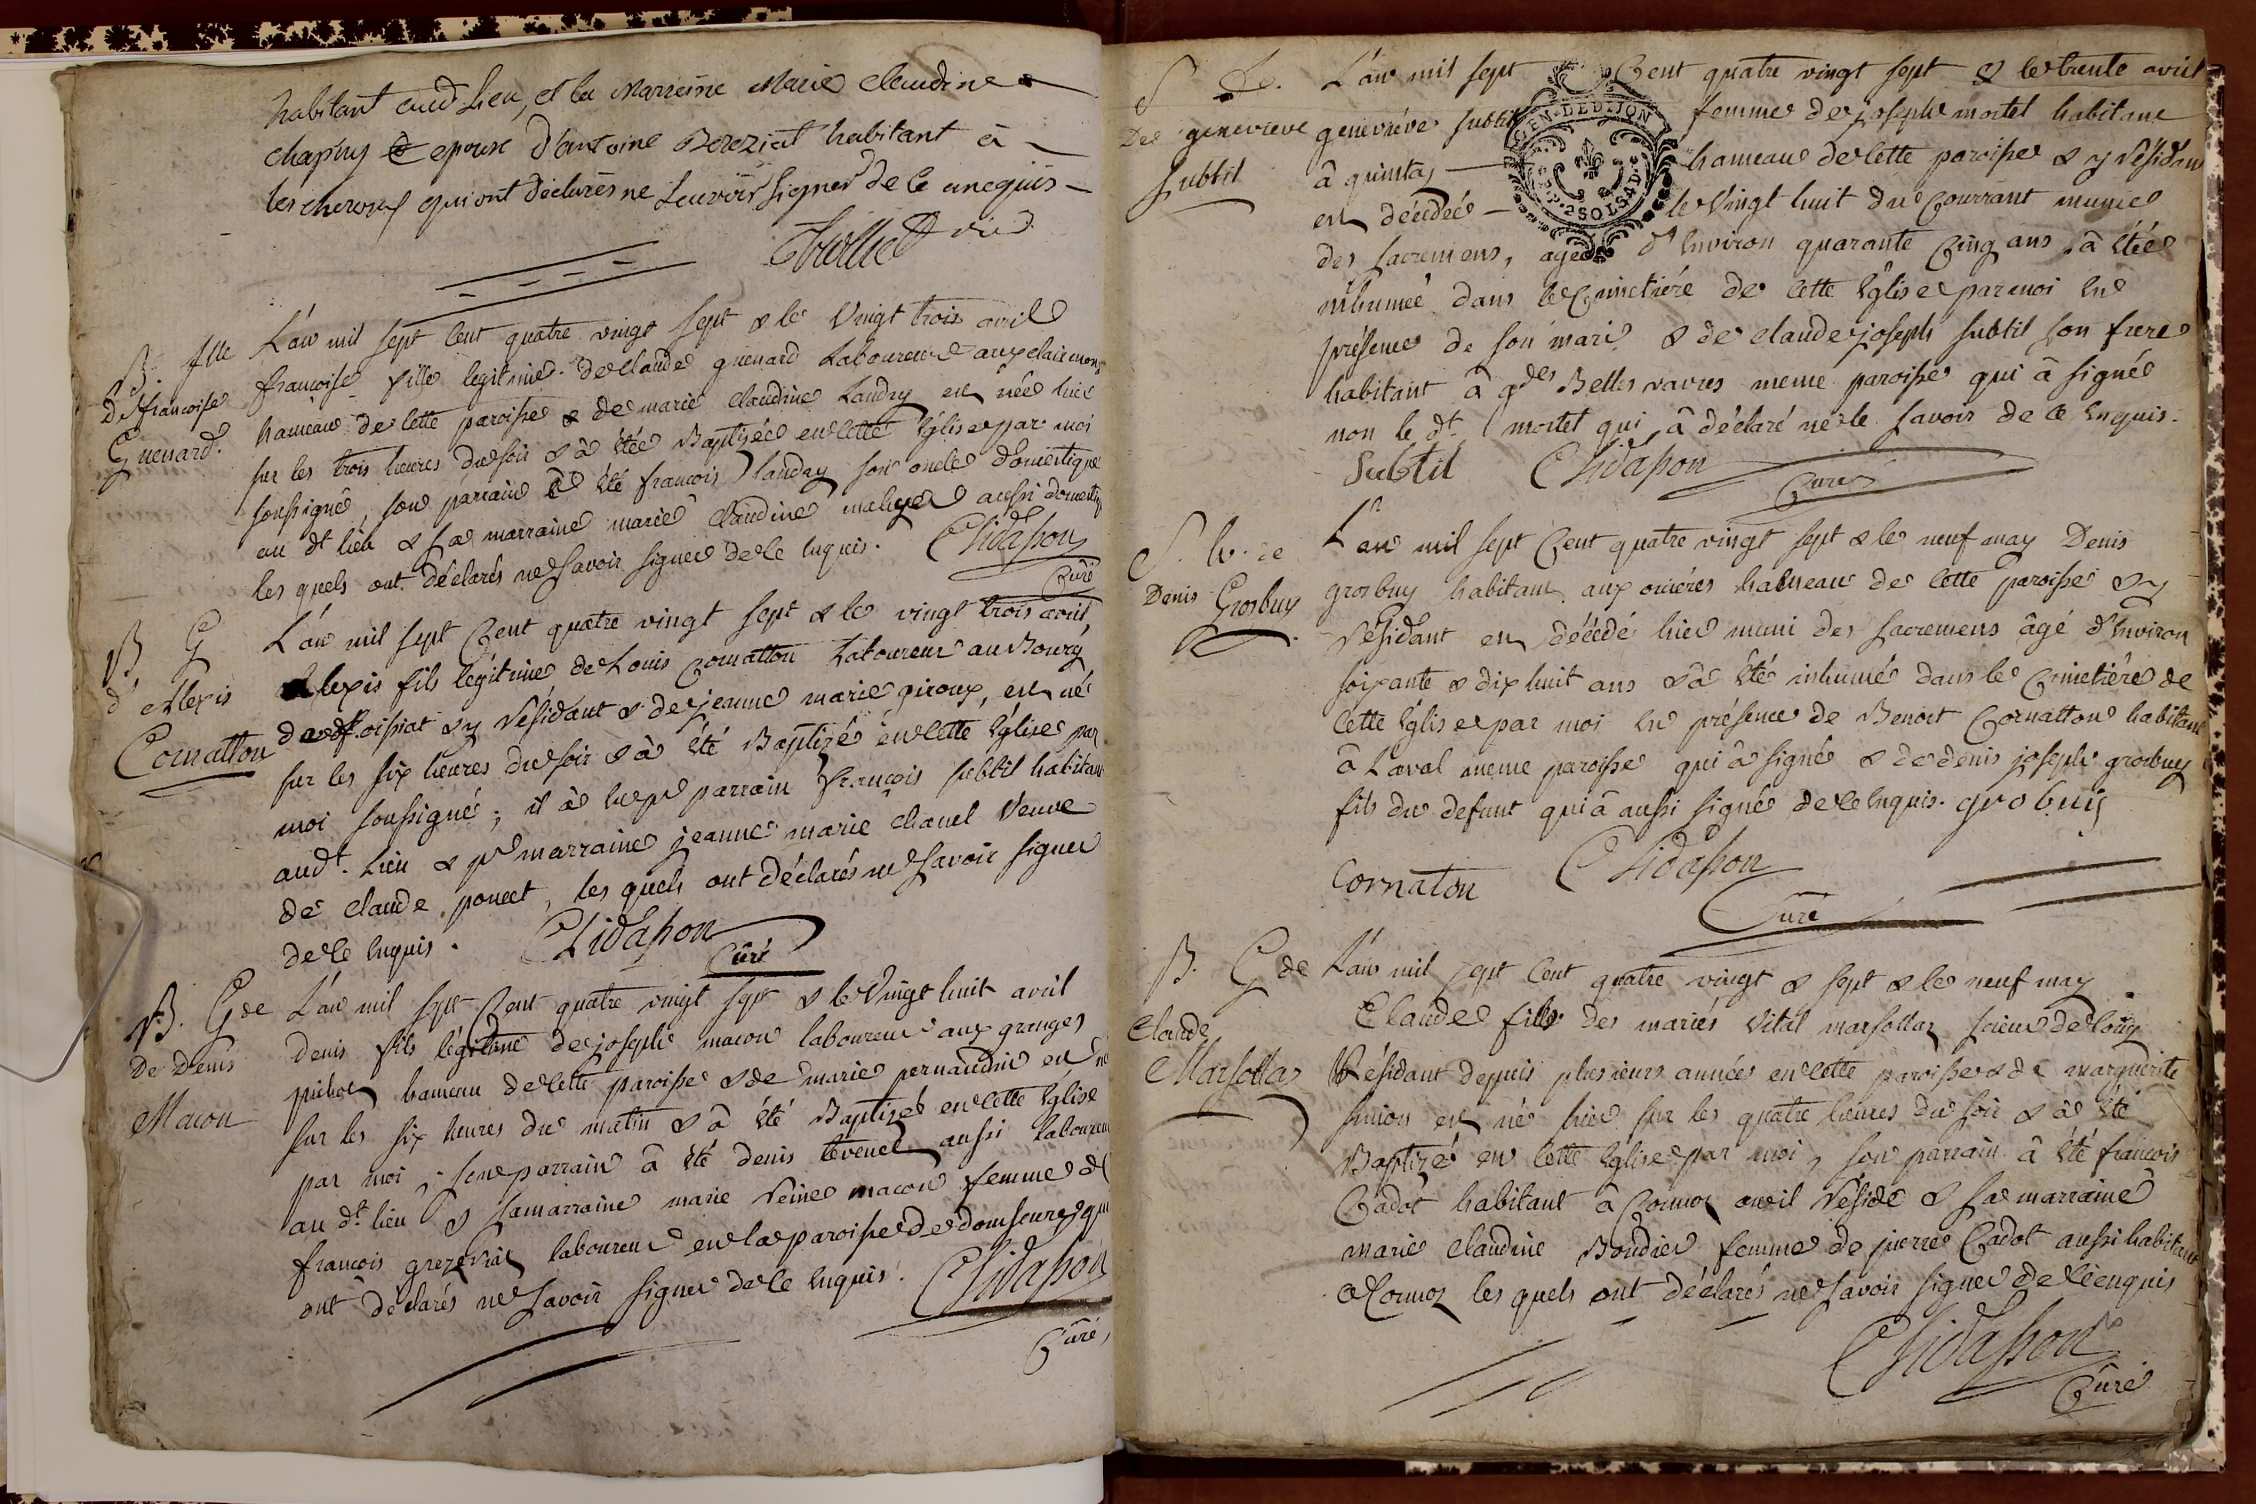 habitant aud lieu, et la Marreine Marie Claudine
chapuy epouse d'antoine Bereziat habitant à
les cherous qui ont déclarés ne scavoir signer de ce anequis
vic.
B. flle
De françoise
Guenard.
L'an mil sept cent quatre vingt sept & le vingt trois avril
francoise fille legitime de Claude guenard Laboureur aux clairmons
hameau de cette paroisse & de marie Claudine Landry est née hier
sur les trois heures du soir & à étée Baptisée en cette Eglise par moi
soussigné, son parrain à été francois Landry son oncle domestique
au dt lieu & sa marraine marie Claudine aussi domestique
les quels ont déclarés ne savoir signer de ce enquis. Chidasson
Curé
B G
d'Alexis
Cornatton
L'an mil sept Cent quatre vingt sept & le vingt trois avril,
alexis fils légitime de Louis Cornatton Laboureur au Bourg
de st. oissiat & y résidant & de jeanne marie giroux, est né
sur les six heures du soir & à été Baptizé en cette Eglise par
moi soussigné; il à eu pr parrain françois subtil habitant
audt. Lieu & pr marraine jeanne marie chanel veuve
de claude poncet, les quels ont déclarés ne savoir signer
de ce enquis. Chidasson
Curé
B. G de
De Denis
Macon
L'an mil sept Cent quatre vingt sept & le vingt huit avril
denis fils légitime de joseph macon laboureur aux granges
pichot hameau de cette paroisse & de marie pernaudin est né
sur les six heures du matin & à été Baptizé en cette Eglise
par moi, son parrain à été denis tevenet aussi laboureur
au dt. lieu & sa marraine marie Reine macon femme de
françois laboureur en la paroisse de domseure qui
ont déclarés ne savoir signer de ce enquis. Chidasson
Curé
S De.
De genevieve
Subtil
L'an mil sept Cent quatre vingt sept & le trente avril
geneviéve subtil femme de joseph mortel habitant
à quintas hameau de cette paroisse & y résidant
est décédée le vingt huit du Courrant munie
des sacremens, agée d'environ quarante Cinq ans, à étée
inhumée dans le Cimetiére de cette Eglise par moi en
présence de son mari & de claude joseph subtil son frere
habitant à gdes Belles vavres meme paroisse qui à signé
non le dt. mortel qui à déclaré ne le savoir de ce enquis.
Subtil Chidasson
Curé
GEN. DE DIJON
2 SOLS 4 D.
S. h. de
Denis Grosbuy
L'an mil sept Cent quatre vingt sept & le neuf may Denis
grosbuy habitant aux oriéres hameau de cette paroisse & y
résidant est décédé hier muni des sacremens âgé d'environ
soixante & dix huit ans & à été inhumé dans le Cimetiére de
cette Eglise par moi en présence de Benoit Cornatton habitant
à Laval meme paroisse qui à signé & de denis joseph grosbuy
fils du defunt qui à aussi signé de ce enquis. grobuij
Cornaton Chidasson
Curé
B. G de
Claude
Marsollas
L'an mil sept Cent quatre vingt & sept & le neuf may
Claude fils des mariés vital marsollas scieur de long
Résidant depuis plusieurs années en cette paroisse & de marguerite
simon est né hier sur les quatre heures du soir & à été
Baptizé en cette Eglise par moi, son parrain à été françois
Cadot habitant à Cormoz ou il réside & sa marraine
marie claudine Bondier femme de pierre Cadot aussi habitant
à Cormoz les quels ont déclarés ne savoir signer de ce enquis
Chidasson
Curé